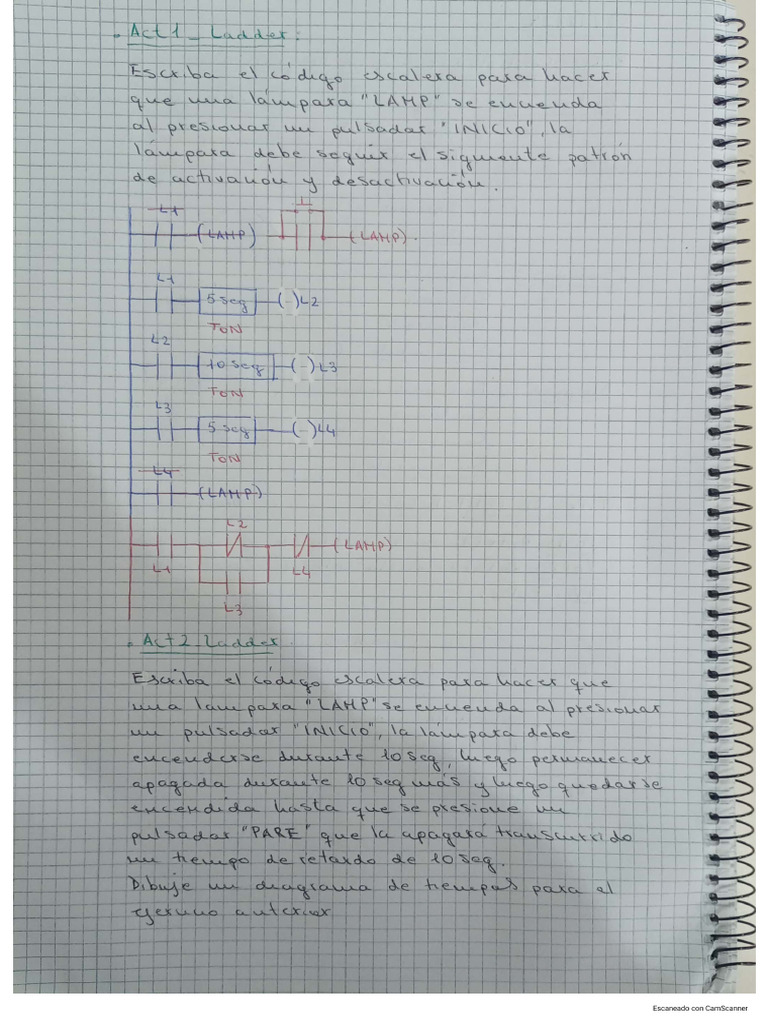 . Act 1 _ Ladder:
Escriba el código escalera para hacer
que una lámpara "LAMP" se encienda
al presionar un pulsador "INICIO", la
lámpara debe seguir el siguiente patrón
de activación y desactivación.
L1
(LAMP) (LAMP).
L1
5 seg ( )L2
TON
L2
10 seg ( )L3
TON
L3
5 seg ( )L4
TON
L4
(LAMP)
L2
(LAMP)
L1 L4
L3
. Act 2 _ Ladder.
Escriba el código escalera para hacer que
una lámpara "LAMP" se encienda al presionar
un pulsador "INICIO", la lámpara debe
encenderse durante 10 seg, luego permanecer
apagada durante 10 seg más y luego quedarse
encendida hasta que se presione un
pulsador "PARE" que la apagara transcurrido
un tiempo de retardo de 10 seg.
Dibuje un diagrama de tiempos para el
ejercicio anterior
Escaneado con CamScanner